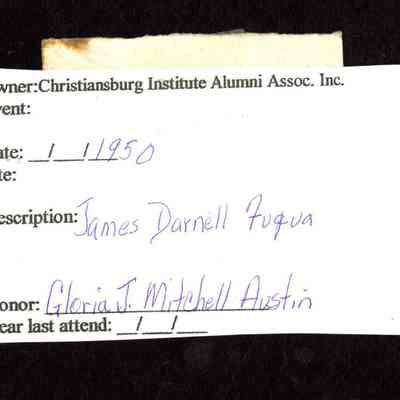 wner:Christiansburg Institute Alumni Assoc. Inc.
vent:
ate: __/__/1950
te:
escription: James Darnell Fuqua
onor: Gloria J. Mitchell Austin
ear last attend: __/__/__